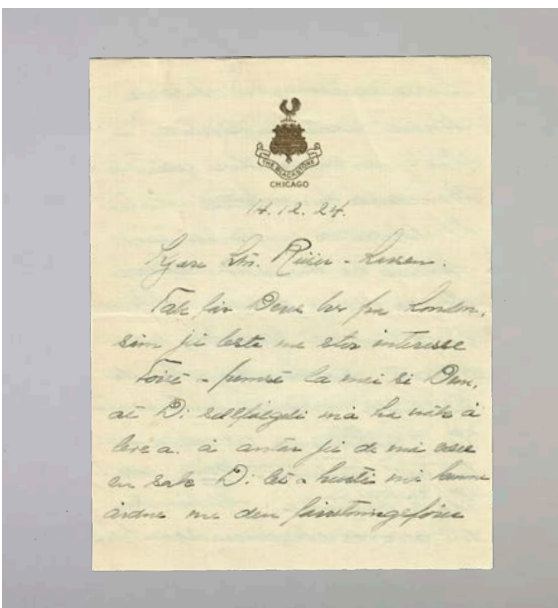 THE BLACKSTONE
CHICAGO
14.12.24.
Kjære Ltn. Riiser-Larsen.
Tak for Deres br fra London,
som jei leste me stor interesse
Først - fremst la mei si Dem,
at Di selfølgeli må ha nåk å
leve a. å antar jei de må være
en sak Di let - hurti må kunne
årdne me den